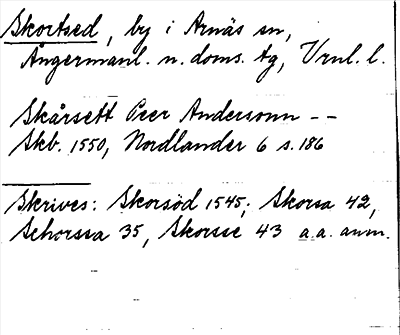 Skortsed, by i Arnäs sn,
Ångermanl. n. doms. tg, Vrnl. l.
Skårsett Peer Andersonn --
Skb. 1550, Nordlander 6 s. 186
Skrives: Skorsöd 1545; Skorsa 42,
Schorssa 35, Skorsse 43 a.a. anm.